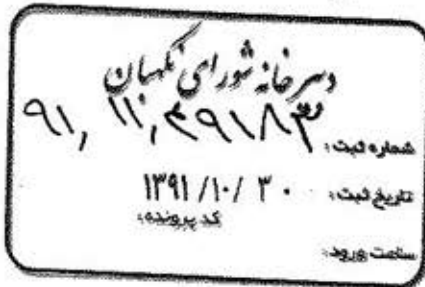 دبیرخانه شورای نگهبان
شماره ثبت: ۹۱/۱۱/۴۹۱۸۳
تاریخ ثبت: ۱۳۹۱/۱۰/۳۰
کد پرونده:
ساعت ورود: